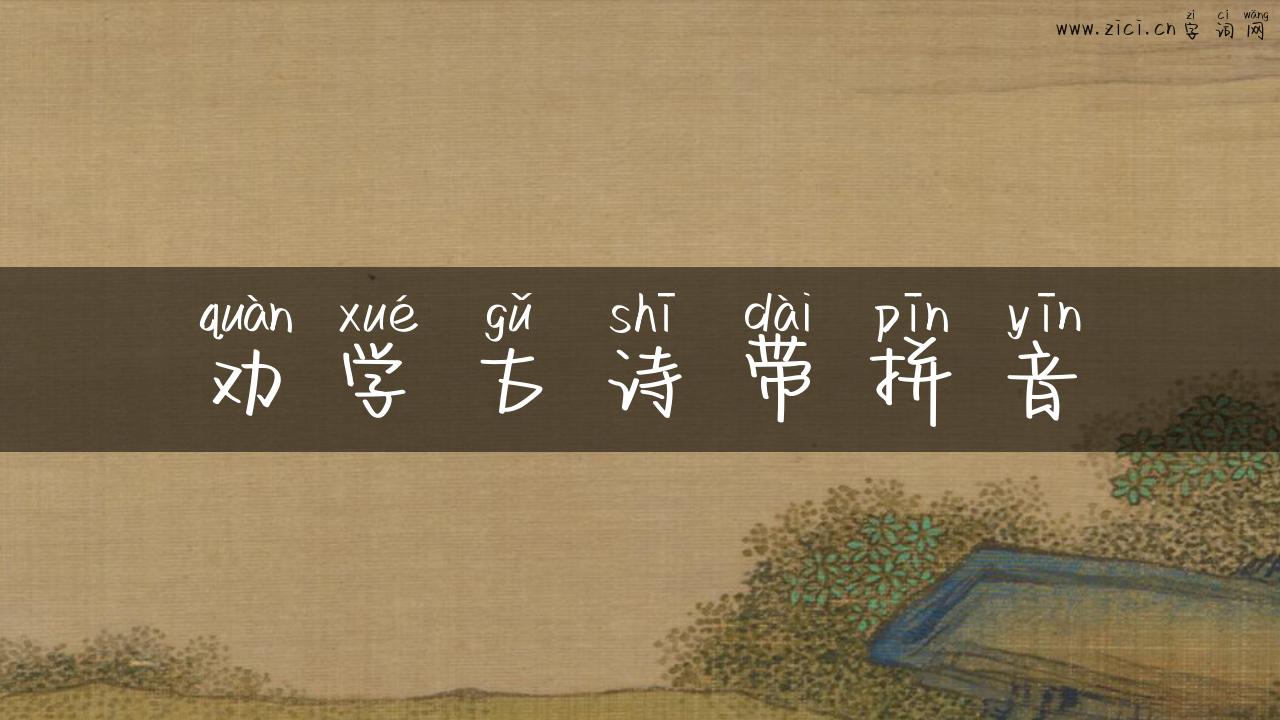 zì cí wǎng
www.zici.cn 字词网
quàn xué gǔ shī dài pīn yīn
劝学古诗带拼音